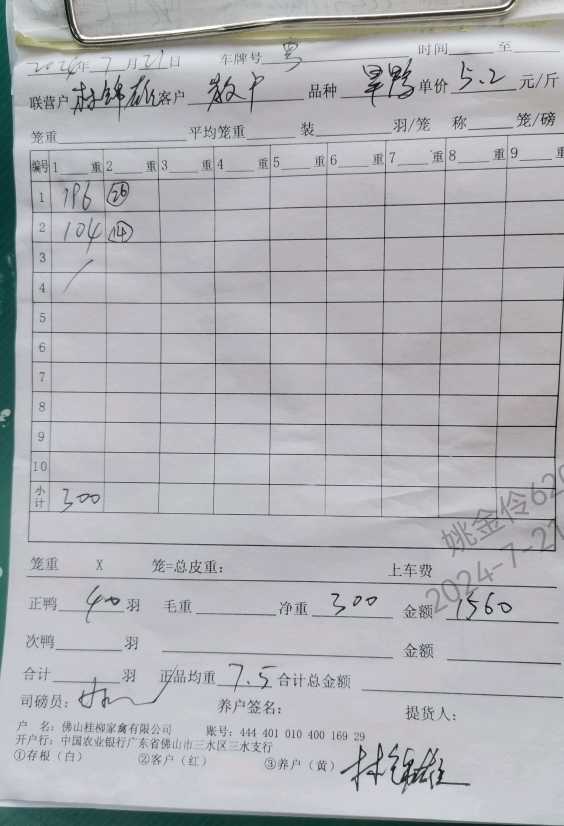 2024年7月21日 车牌号 粤 时间 至
联营户 林锦雄 客户 散户 品种 旱鸭 单价 5.2 元/斤
笼重 平均笼重 装 羽/笼 称 笼/磅
编号 1 重 2 重 3 重 4 重 5 重 6 重 7 重 8 重 9 重
1 196 26
2 104 14
3
4
5
6
7
8
9
10
小计 300
笼重 X 笼=总皮重: 上车费
正鸭 40 羽 毛重 净重 300 金额 1560
次鸭 羽 金额
合计 羽 正品均重 7.5 合计总金额
司磅员: 养户签名: 提货人:
户 名: 佛山桂柳家禽有限公司 账号: 444 401 010 400 169 29
开户行: 中国农业银行广东省佛山市三水区三水支行
①存根（白） ②客户（红） ③养户（黄） 林锦雄
姚金伶620
2024-7-21